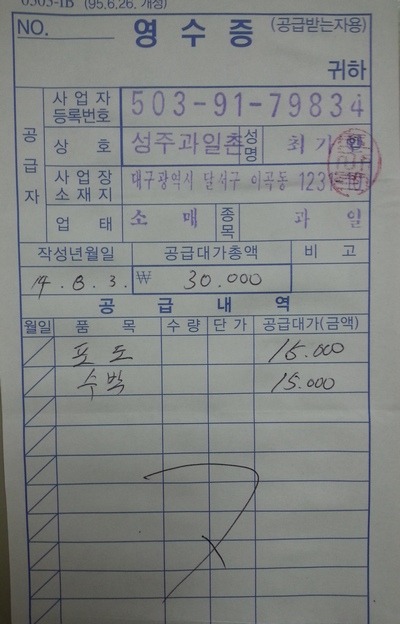 0303-1B (95.6.26. 개정)
NO. 영수증 (공급받는자용)
귀하
공급자
사업자등록번호 503-91-79834
상호 성주과일촌 성명 최기
사업장소재지 대구광역시 달서구 이곡동 1231-10
업태 소매 종목 과일
작성년월일 공급대가총액 비고
14. 8. 3. ₩ 30.000
공급내역
월일 품목 수량 단가 공급대가(금액)
포도 15.000
수박 15.000